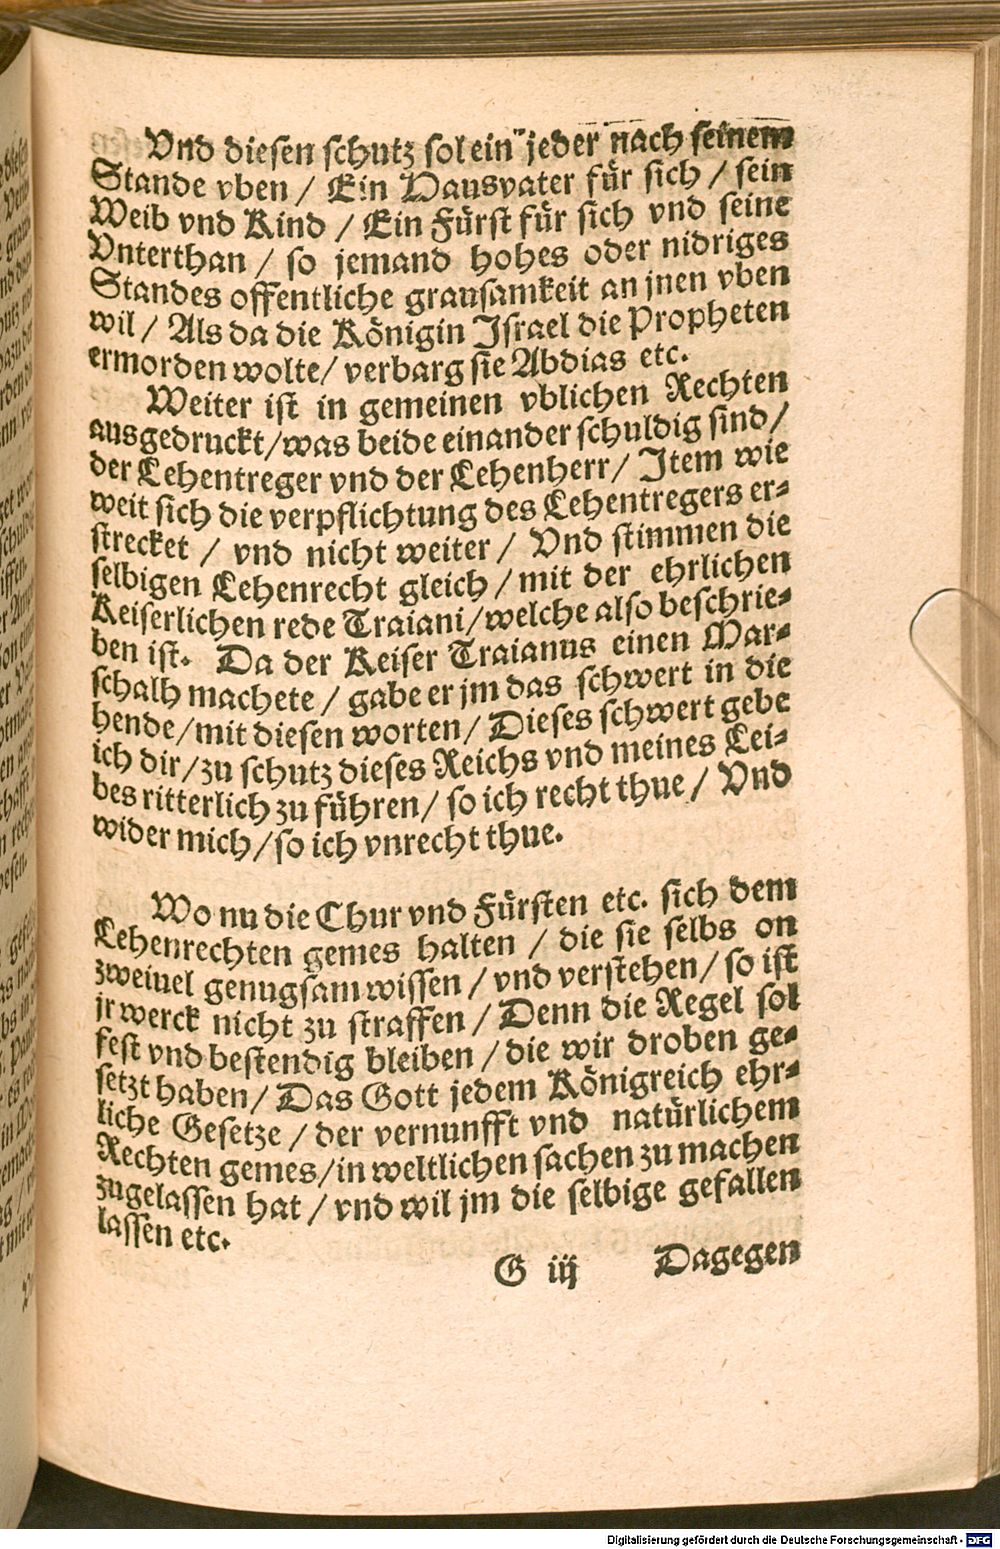 Vnd diesen schutz sol ein jeder nach seinem
Stande vben / Ein Hausvater für sich / sein
Weib vnd Kind / Ein Fürst für sich vnd seine
Vnterthan / so jemand hohes oder nidriges
Standes offentliche grausamkeit an jnen vben
wil / Als da die Königin Israel die Propheten
ermorden wolte / verbarg sie Abdias etc.
Weiter ist in gemeinen vblichen Rechten
ausgedruckt / was beide einander schuldig sind /
der Lehentreger vnd der Lehenherr / Item wie
weit sich die verpflichtung des Lehentregers er-
strecket / vnd nicht weiter / Vnd stimmen die
selbigen Lehenrecht gleich / mit der ehrlichen
Keiserlichen rede Traiani / welche also beschrie-
ben ist. Da der Keiser Traianus einen Mar-
schalh machete / gabe er jm das schwert in die
hende / mit diesen worten / Dieses schwert gebe
ich dir / zu schutz dieses Reichs vnd meines Lei-
bes ritterlich zu führen / so ich recht thue / Vnd
wider mich / so ich vnrecht thue.
Wo nu die Chur vnd Fürsten etc. sich dem
Lehenrechten gemes halten / die sie selbs on
zweiuel genugsam wissen / vnd verstehen / so ist
jr werck nicht zu straffen / Denn die Regel sol
fest vnd bestendig bleiben / die wir droben ge-
setzt haben / Das Gott jedem Königreich ehr-
liche Gesetze / der vernunfft vnd natürlichem
Rechten gemes / in weltlichen sachen zu machen
zugelassen hat / vnd wil jm die selbige gefallen
lassen etc.
G iij Dagegen
Digitalisierung gefördert durch die Deutsche Forschungsgemeinschaft - DFG